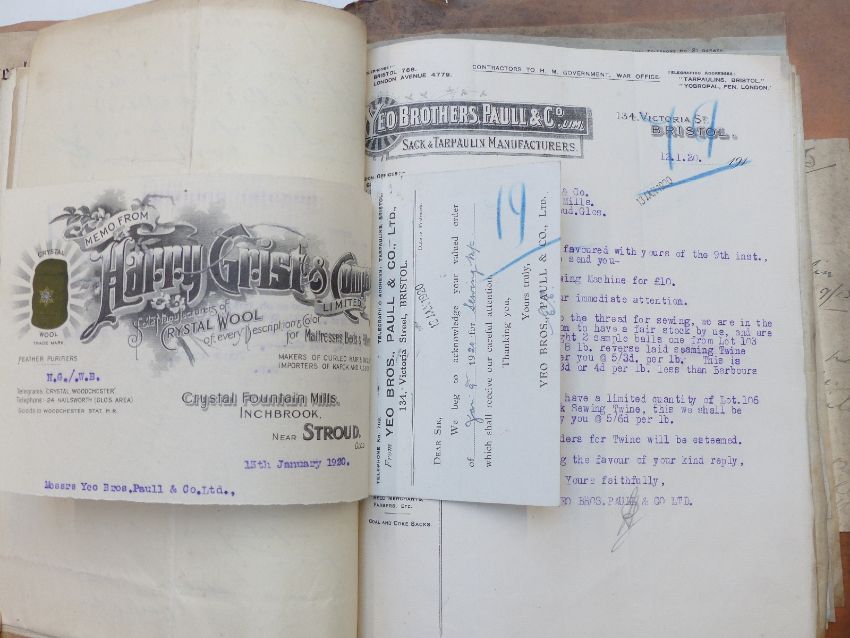 MEMO FROM
Harry Grist & Comp
LIMITED
CRYSTAL
WOOL
TRADE MARK
Sole Manufacturers of
CRYSTAL WOOL
of every Description & Col
for Mattresses, Beds &
FEATHER PURIFIERS
MAKERS OF CURLED HAIR &
IMPORTERS OF KAPOK AND
H.G./W.B.
Telegrams: CRYSTAL, WOODCHESTER
Telephone: 24 NAILSWORTH (GLOS. AREA)
Goods to WOODCHESTER STAT. M.R.
Crystal Fountain Mills,
INCHBROOK,
NEAR STROUD,
GLOS
13th January 1920.
Messrs Yeo Bros. Paull & Co. Ltd.,
TELEGRAPHIC ADDRESS, TARPAULINS, BRISTOL.
From YEO BROS., PAULL & CO., LTD.,
134, Victoria Street, BRISTOL.
12 JAN 1920
DEAR SIR,
We beg to acknowledge your valued order
of Jan 9 1920 for Sewing M/c
which shall receive our careful attention.
Thanking you,
Yours truly,
YEO BROS., PAULL & CO., LTD.
19
BRISTOL 768.
LONDON AVENUE 4779.
CONTRACTORS TO H. M. GOVERNMENT, WAR OFFICE
TELEGRAPHIC ADDRESSES:
"TARPAULINS, BRISTOL."
"YOBROPAL, FEN, LONDON."
YEO BROTHERS, PAULL & CO. LTD.
SACK & TARPAULIN MANUFACTURERS.
134, VICTORIA ST.
BRISTOL.
12.1.20. 191
19
13 JAN 1920
& Co.
Mills.
ud.Glos.
favoured with yours of the 9th inst.,
send you-
wing Machine for £10.
r immediate attention.
o the thread for sewing, we are in the
on to have a fair stock by us, and are
ght 2 sample balls one from Lot 103
8 lb. reverse laid seaming Twine
er you @ 5/3d. per lb. This is
3d or 4d per lb. less than Barbours
have a limited quantity of Lot.106
k Sewing Twine, this we shall be
y you @ 5/6d per lb.
ders for Twine will be esteemed.
g the favour of your kind reply,
Yours faithfully,
EO BROS. PAULL & CO LTD.
FARMERS, ETC.
COAL AND COKE SACKS.